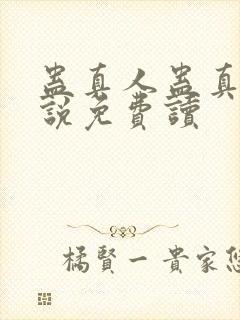 蛊真人蛊真
説免費讀
橘賢一貴家悠